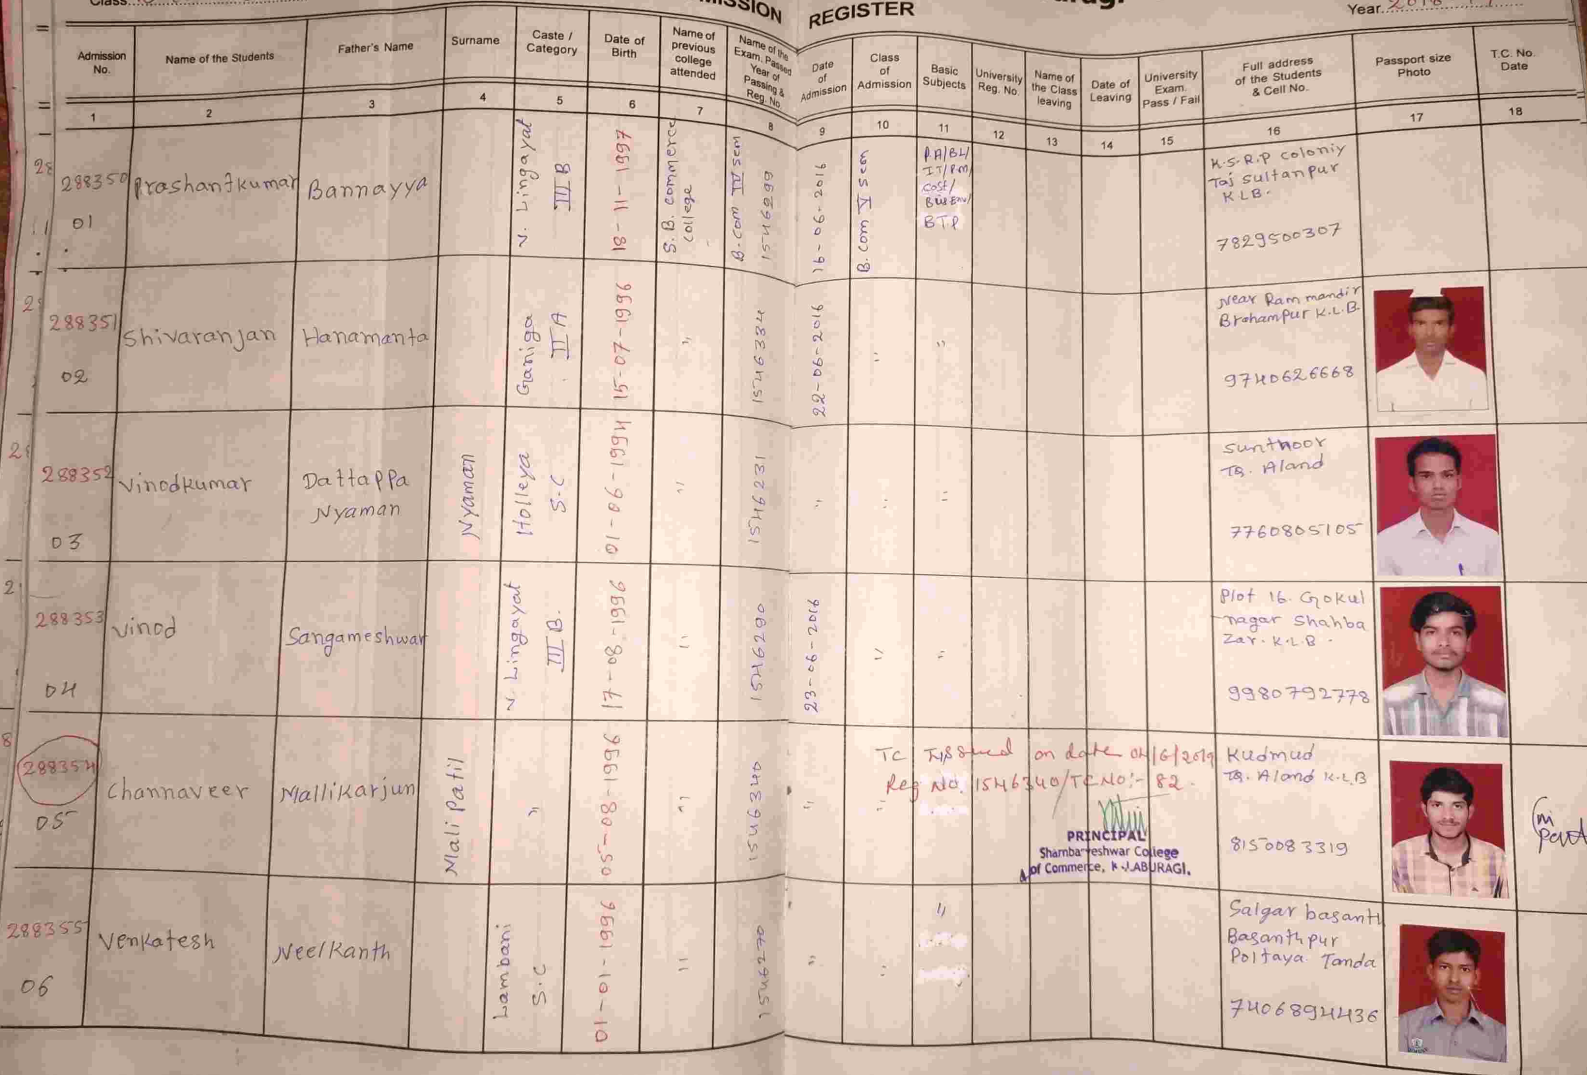 Class
ADMISSION REGISTER
Year 2016
Admission No.
Name of the Students
Father's Name
Surname
Caste / Category
Date of Birth
Name of previous college attended
Name of the Exam. Passed Year of Passing & Reg. No.
Date of Admission
Class of Admission
Basic Subjects
University Reg. No.
Name of the Class leaving
Date of Leaving
University Exam. Pass / Fail
Full address of the Students & Cell No.
Passport size Photo
T.C. No. Date
1 2 3 4 5 6 7 8 9 10 11 12 13 14 15 16 17 18
288350
01
Prashantkumar
Bannayya
V. Lingayat
III B
18-11-1997
S.B. commerce
college
B.com IV sem
1546299
16-06-2016
B.com V sem
BTP
K.S.R.P coloniy
Taj sultanpur
KLB.
7829500307
288351
02
Shivaranjan
Hanamanta
Ganiga
II A
15-07-1996
"
1546334
22-06-2016
"
"
Near Ram mandir
Brahampur K.L.B.
9740626668
288352
03
Vinodkumar
Dattappa
Nyaman
Nyaman
Holleya
S.C
01-06-1994
"
1546231
"
"
Sunthoor
Tq. Aland
7760805105
288353
04
Vinod
Sangameshwar
V. Lingayat
III B.
17-08-1996
"
1546290
23-06-2016
"
"
Plot 16. Gokul
nagar Shahba
Zar. K.L.B.
9980792778
288354
05
Channaveer
Mallikarjun
Mali Patil
"
05-08-1996
"
1546340
"
"
TC Issued on date 04/6/2019
Reg No. 1546340/TC NO:- 82.
PRINCIPAL
Sharnbasveshwar College
of Commerce, KALABURAGI.
Kudmud
Tq. Aland K.L.B
8150083319
288355
06
Venkatesh
Neelkanth
Lambani
S.C
01-01-1996
"
1546270
"
"
"
Salgar basanti
Basanthpur
Poltaya Tanda
7406894436